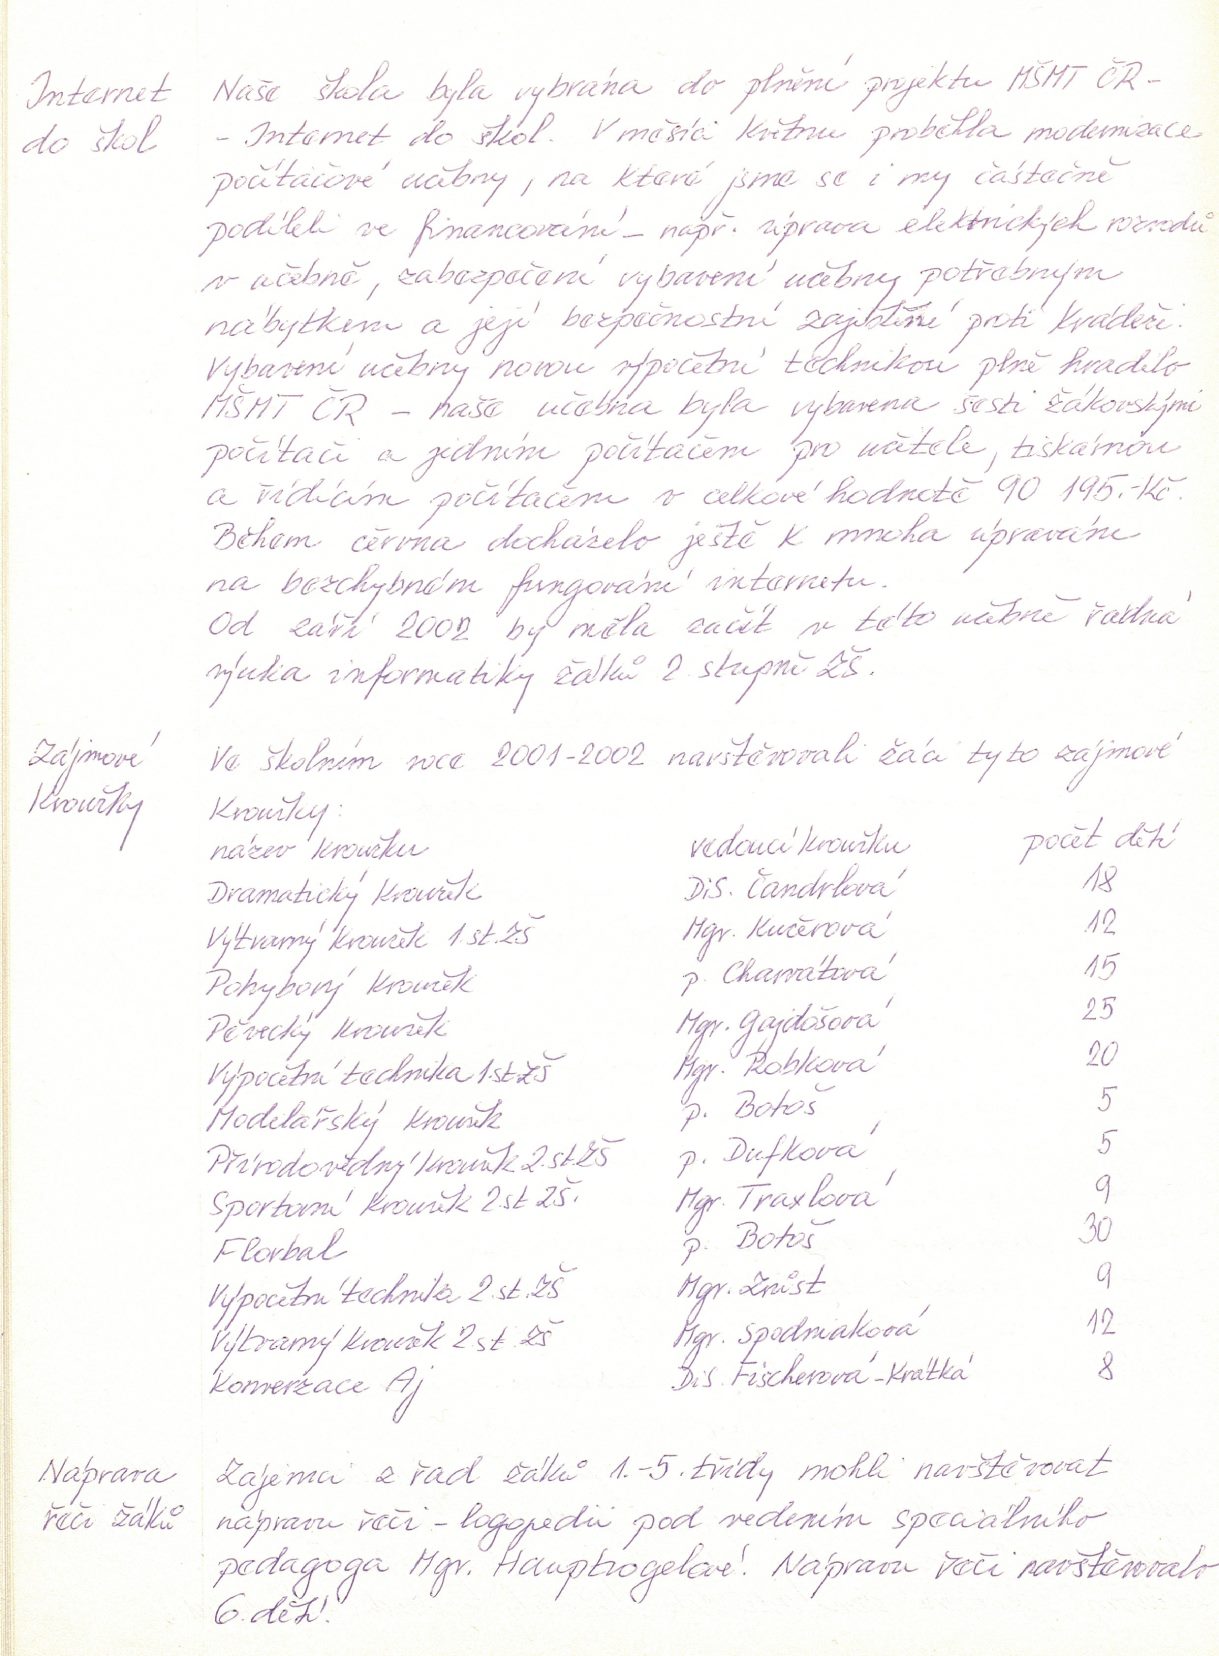 Internet
do škol
Naše škola byla vybrána do plnění projektu MŠMT ČR -
- Internet do škol. V měsíci květnu proběhla modernizace
počítačové učebny, na které jsme se i my částečně
podíleli ve financování - např. úprava elektrických rozvodů
v učebně, zabezpečení vybavení učebny potřebným
nábytkem a její bezpečnostní zajištění proti krádeži.
Vybavení učebny novou výpočetní technikou plně hradilo
MŠMT ČR - naše učebna byla vybavena šesti žákovskými
počítači a jedním počítačem pro učitele, tiskárnou
a řídícím počítačem v celkové hodnotě 90 195.-Kč.
Během června docházelo ještě k mnoha úpravám
na bezchybném fungování internetu.
Od září 2002 by měla začít v této učebně řádná
výuka informatiky žáků 2. stupně ZŠ.
Zájmové
kroužky
Ve školním roce 2001-2002 navštěvovali žáci tyto zájmové
kroužky:
název kroužku vedoucí kroužku počet dětí
Dramatický kroužek DiS. Čandrlová 18
Výtvarný kroužek 1.st.ZŠ Mgr. Kučerová 12
Pohybový kroužek p. Charvátová 15
Pěvecký kroužek Mgr. Gajdošová 25
Výpočetní technika 1.st.ZŠ Mgr. Řobková 20
Modelářský kroužek p. Botoš 5
Přírodovědný kroužek 2.st.ZŠ p. Dufková 5
Sportovní kroužek 2.st ZŠ. Mgr. Traxlová 9
Florbal p. Botoš 30
Výpočetní technika 2.st.ZŠ Mgr. Znůst 9
Výtvarný kroužek 2.st.ZŠ Mgr. Spodniaková 12
Konverzace Aj DiS. Fischerová-Krátká 8
Náprava
řeči žáků
Zájemci z řad žáků 1.-5. třídy mohli navštěvovat
nápravu řeči - logopedii pod vedením speciálního
pedagoga Mgr. Hauptvogelové. Nápravu řeči navštěvovalo
6. dětí.